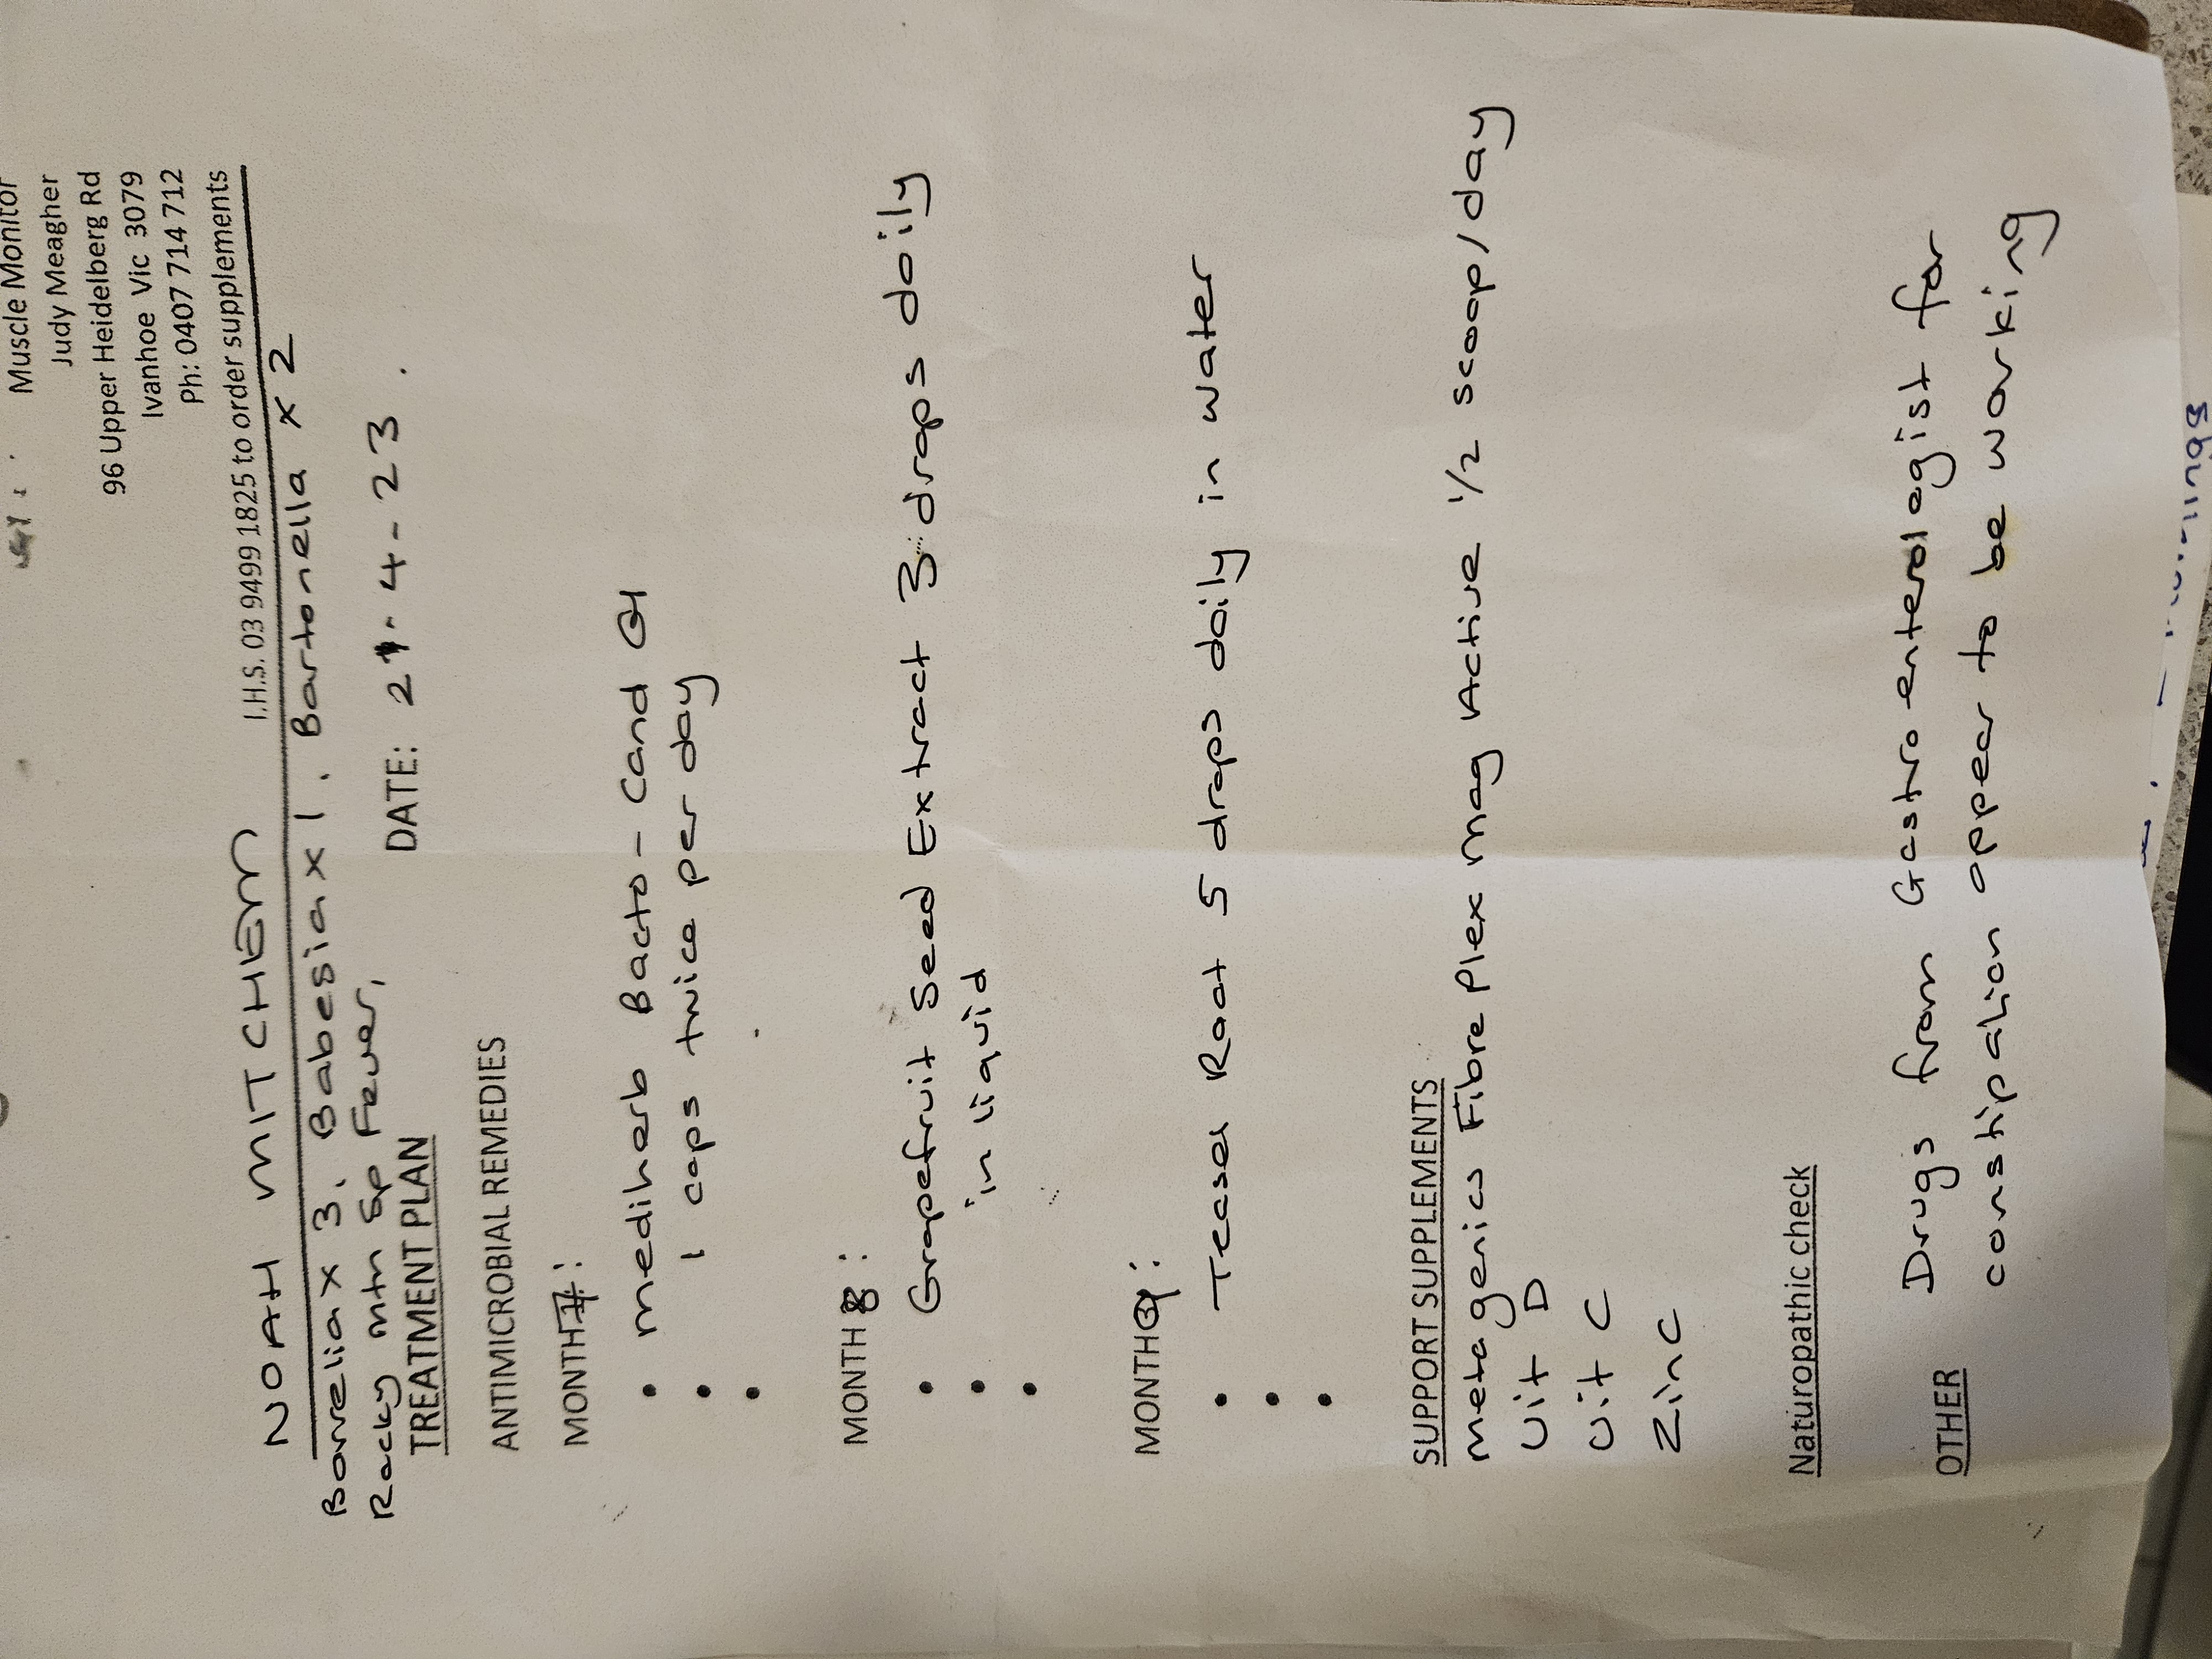 Muscle Monitor
Judy Meagher
96 Upper Heidelberg Rd
Ivanhoe Vic 3079
Ph: 0407 714 712
I.H.S. 03 9499 1825 to order supplements
NOAH MITCHEM
Borrelia x 3. Babesia x 1. Bartonella x 2
Rocky mtn Sp Fever,
TREATMENT PLAN DATE: 21-4-23.
ANTIMICROBIAL REMEDIES
MONTH 7:
• mediherb Bacto-Cand GI
• 1 caps twice per day
•
MONTH 8:
• Grapefruit Seed Extract 3 drops daily
• in liquid
•
MONTH 9:
• Teasel Root 5 drops daily in water
•
•
SUPPORT SUPPLEMENTS
metagenics Fibre Plex mag Active 1/2 scoop/day
Vit D
Vit C
Zinc
Naturopathic check
OTHER Drugs from Gastroenterologist for
constipation appear to be working